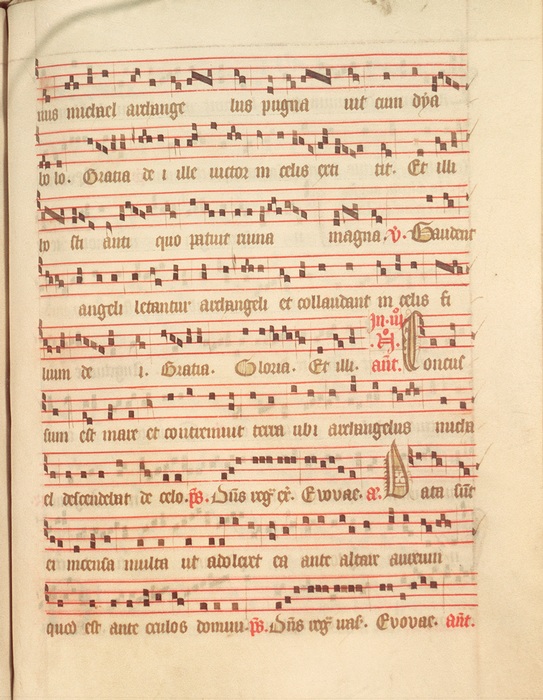 nus michael archange lus pugna uit cum dya
bo lo. Gratia de i ille uictor in celis exti tit. Et illi
bo sti anti quo patuit ruina magna. v. Gaudent
angeli letantur archangeli et collaudant in celis fi
lium de i. Gratia. Gloria. Et illi. In iii. N. ant. Concus
sum est mare et contremuit terra ubi archangelus micha
el descendebat de celo. ps. Dns reg. Evovae. a. Data sunt
ei incensa multa ut adoleret ea ante altare aureum
quod est ante oculos domini. ps. Dns reg. Evovae. ant.